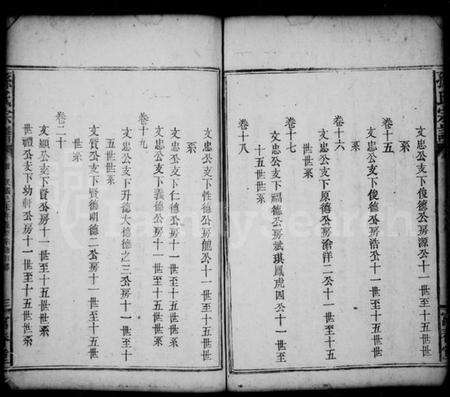 卷十五
文忠公支下俊德公房源公十一世至十五世世
系
文忠公支下俊德公房浩公十一世至十五世世
系
卷十六
文忠公支下原德公房渝洋二公十一世至十五
世世系
卷十七
文忠公支下福德公房斌琪鳳虎四公十一世至
十五世世系
卷十八
文忠公支下性德公房能公十一世至十五世世
系
文忠公支下仁德公房十一世至十五世世系
文忠公支下義德公房十一世至十五世世系
卷十九
文忠公支下升德久德德之三公房十一世至十
五世世系
文質公支下賢德明德二公房十一世至十五世
世系
卷二十
文顯公支下賢公房十一世至十五世世系
世禮公支下幼軒公房十一世至十五世世系